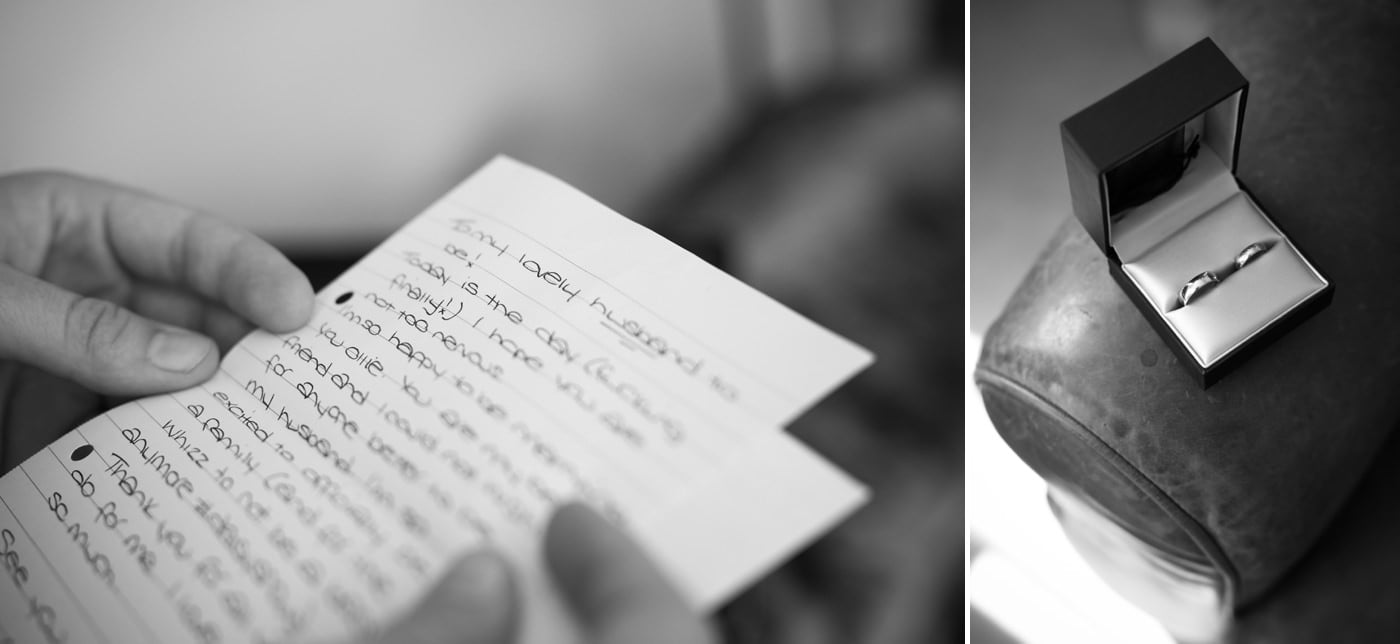 To my lovely husband to
be!
Today is the day (fucking
finally!) I hope you are
not too nervous
I'm so happy to be
you ollie. You are my
friend and I could not
for anyone better to
my husband. I'm so
excited to officially
a family (and
whizz to not be a
anymore
Thank you for
do for me I love
so much
See you